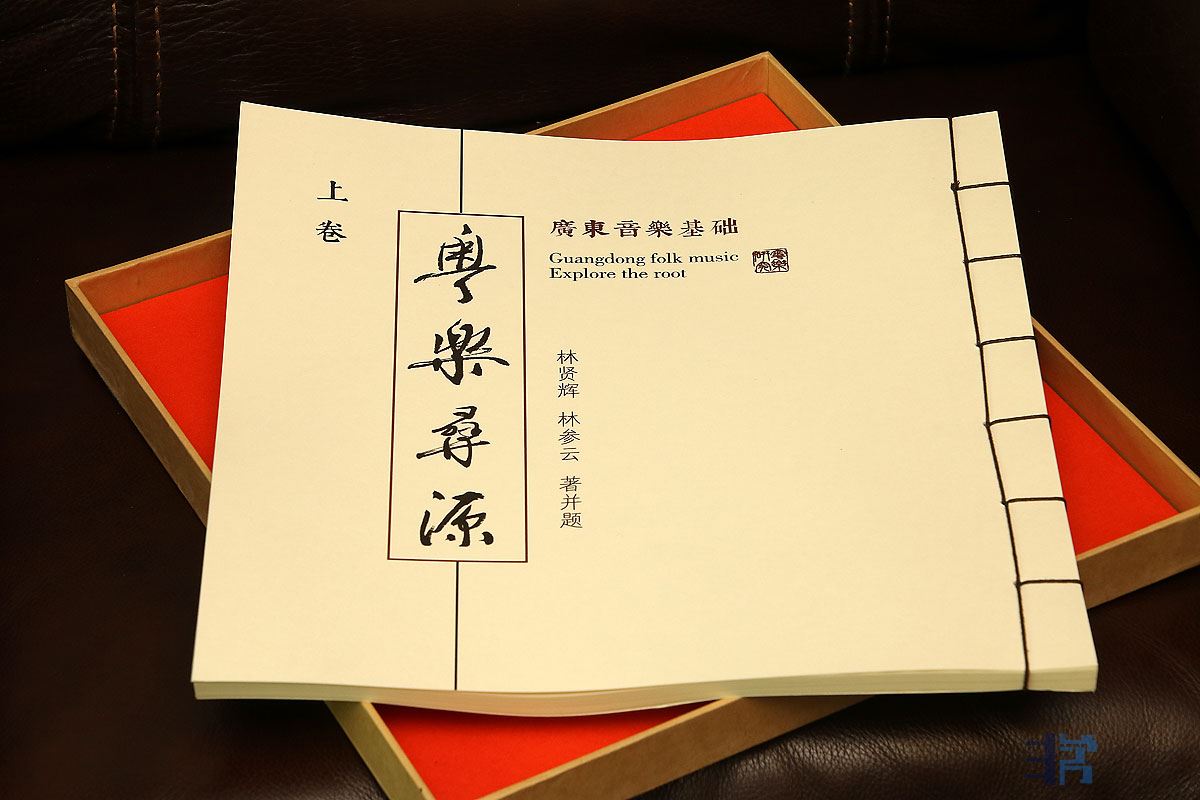 上卷
粤樂尋源
廣東音樂基础
Guangdong folk music
Explore the root
粤樂研究
林贤辉 林参云 著并题